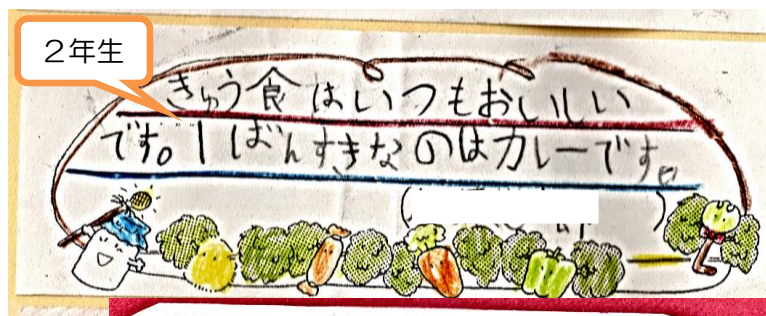 2年生
きゅう食はいつもおいしい
です。1ばんすきなのはカレーです。